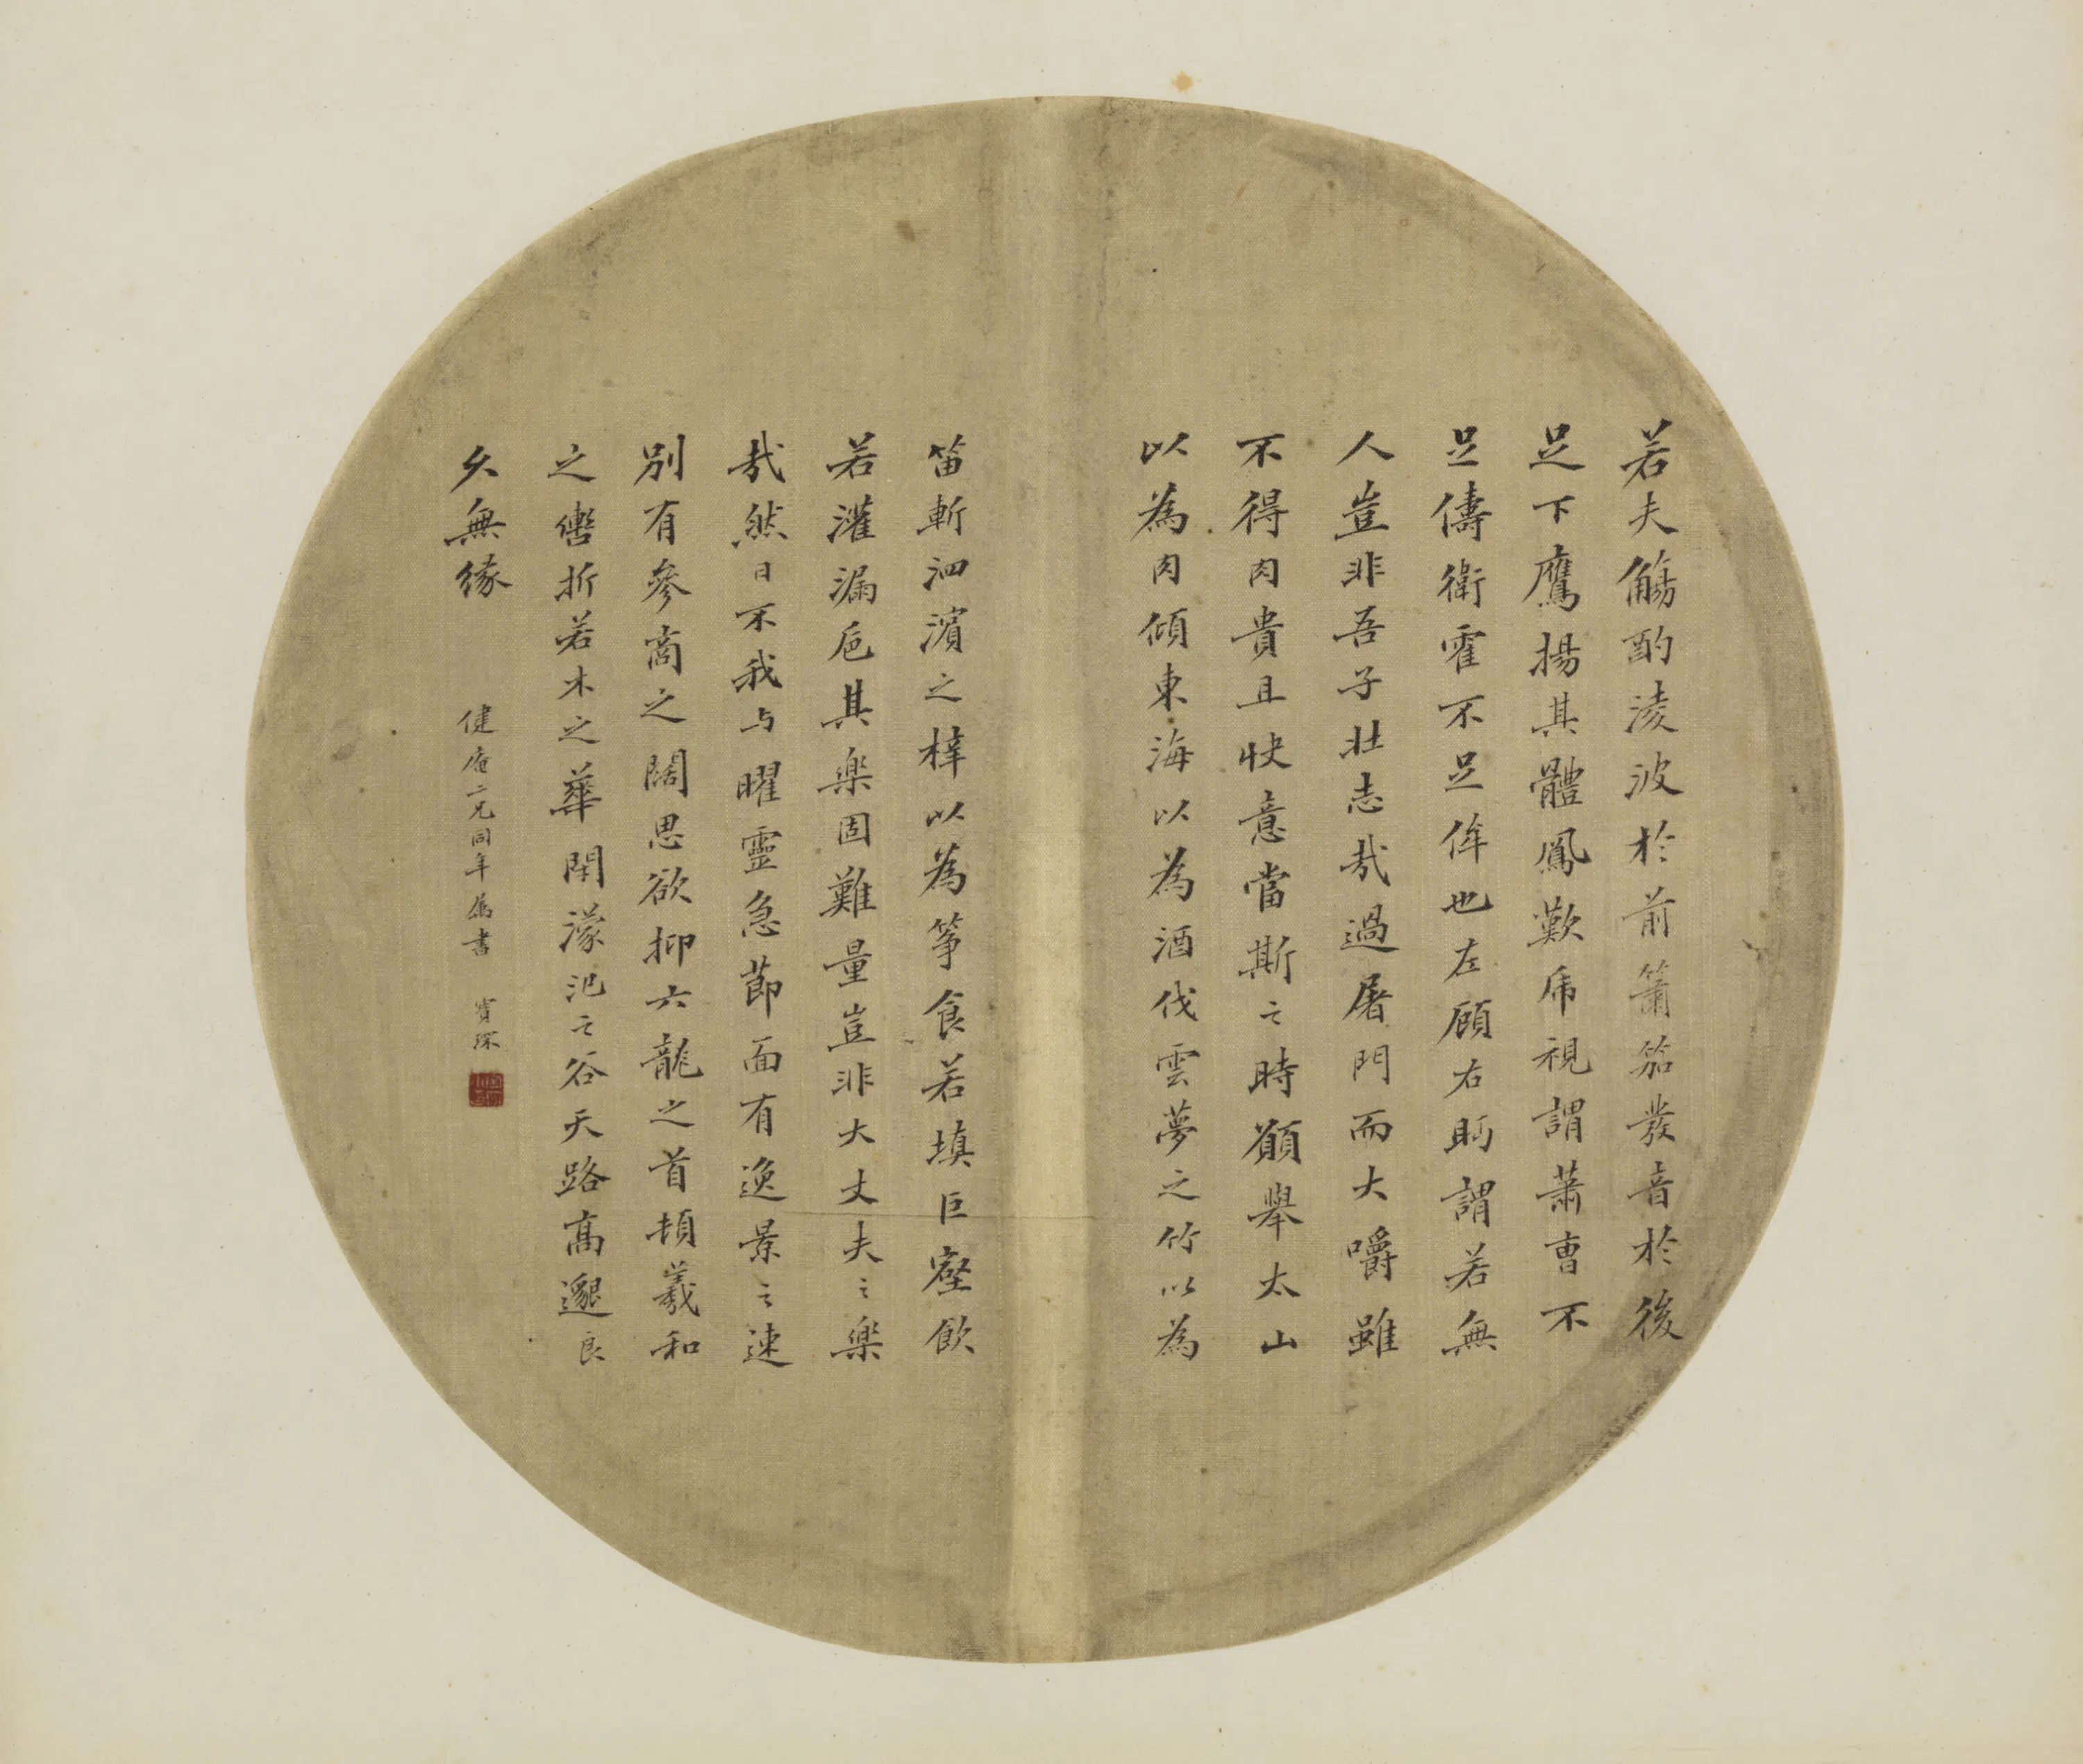 若夫觴酌淩波於前簫笳發音於後
足下鷹揚其體鳳歎虎視謂蕭曹不
足儔衛霍不足侔也左顧右眄謂若無
人豈非吾子壯志哉過屠門而大嚼雖
不得肉貴且快意當斯之時願舉太山
以為肉傾東海以為酒伐雲夢之竹以為
笛斬泗濱之梓以為箏食若填巨壑飲
若灌漏卮其樂固難量豈非大丈夫之樂
哉然日不我与曜靈急節面有逸景之速
別有參商之闊思欲抑六龍之首頓羲和
之轡折若木之華閉濛汜之谷天路高邈良
久無緣
健庵二兄同年属書 寶琛